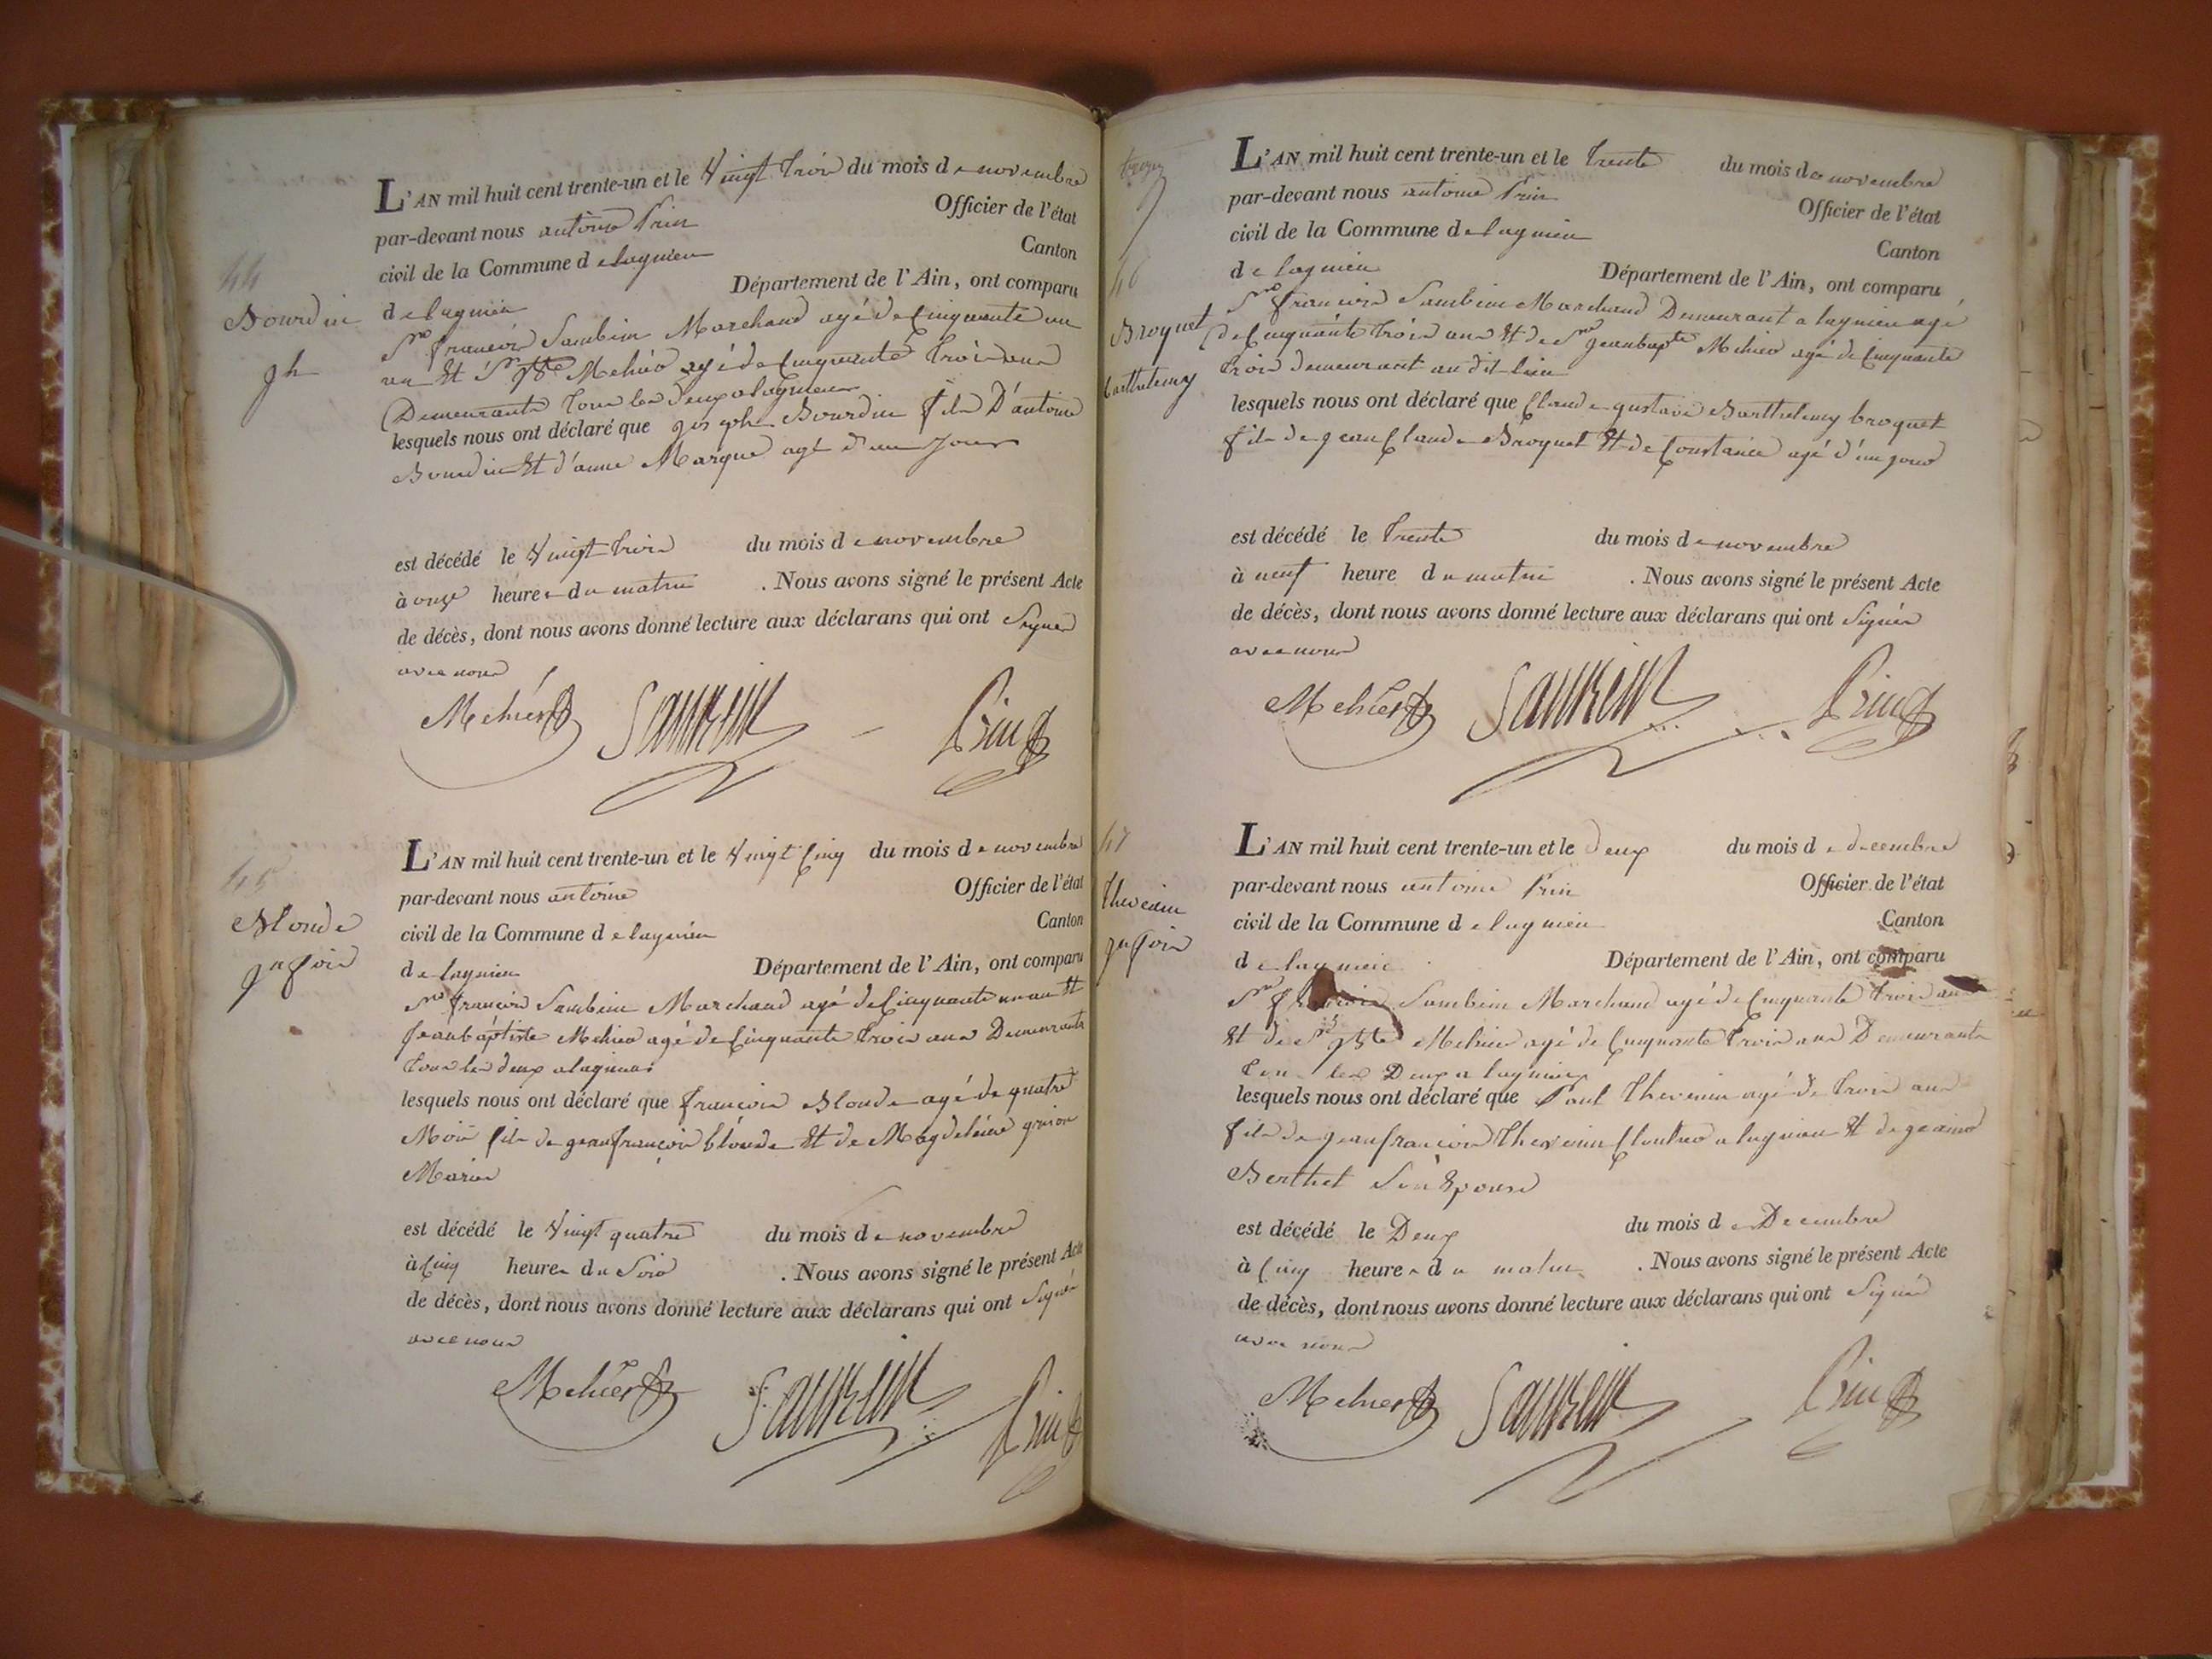 44
Bourdin
jh
L'AN mil huit cent trente-un et le Vingt trois du mois de novembre
par-devant nous antoine Prin Officier de l'état
civil de la Commune de lagnieu Canton
de lagnieu Département de l'Ain, ont comparu
Sr françois Sambin Marchand agé de Cinquante un
an Et Sr jBte Mehier agé de Cinquante trois ans
Demeurants tous les deux a lagnieu
lesquels nous ont déclaré que joseph Bourdin fils D'antoine
Bourdin Et d'anne Marque agé d'un jour
est décédé le Vingt trois du mois de novembre
à onze heures du matin . Nous avons signé le présent Acte
de décès, dont nous avons donné lecture aux déclarans qui ont Signés
avec nous
Mehier Sambin Prin
45
Blonde
jn fois
L'AN mil huit cent trente-un et le Vingt Cinq du mois de novembre
par-devant nous antoine Officier de l'état
civil de la Commune de lagnieu Canton
de lagnieu Département de l'Ain, ont comparu
Sr françois Sambin Marchand agé de Cinquante un an Et
Jean baptiste Mehier agé de Cinquante trois ans Demeurants
tous les deux a lagnieu
lesquels nous ont déclaré que françois Blonde agé de quatre
Mois fils de jean françois blonde Et de Magdeleine
Marie
est décédé le Vingt quatre du mois de novembre
à Cinq heures du Soir . Nous avons signé le présent Acte
de décès, dont nous avons donné lecture aux déclarans qui ont Signés
avec nous
Mehier Sambin Prin
46
Broquet
barthelemy
L'AN mil huit cent trente-un et le trente du mois de novembre
par-devant nous antoine Prin Officier de l'état
civil de la Commune de lagnieu Canton
de lagnieu Département de l'Ain, ont comparu
Sr françois Sambin Marchand Demeurant a lagnieu agé
de Cinquante trois ans Et de Sr jean bapte Mehier agé de Cinquante
trois demeurant au dit lieu
lesquels nous ont déclaré que Claude gustave Barthelemy broquet
fils de jean Claude Broquet Et de Constance agé d'un jour
est décédé le trente du mois de novembre
à neuf heure du matin . Nous avons signé le présent Acte
de décès, dont nous avons donné lecture aux déclarans qui ont Signés
avec nous
Mehier Sambin Prin
47
thevenin
jn fois
L'AN mil huit cent trente-un et le deux du mois de decembre
par-devant nous antoine Prin Officier de l'état
civil de la Commune de lagnieu Canton
de lagnieu Département de l'Ain, ont comparu
Sr françois Sambin Marchand agé de Cinquante trois ans
Et de Sr jBte Mehier agé de Cinquante trois ans Demeurants
tous les Deux a lagnieu
lesquels nous ont déclaré que Paul thevenin agé de trois ans
fils de jean françois thevenin Cloutier a lagnieu Et de
Berthet Son Epouse
est décédé le Deux du mois de Decembre
à Cinq heures du matin . Nous avons signé le présent Acte
de décès, dont nous avons donné lecture aux déclarans qui ont Signé
avec nous
Mehier Sambin Prin